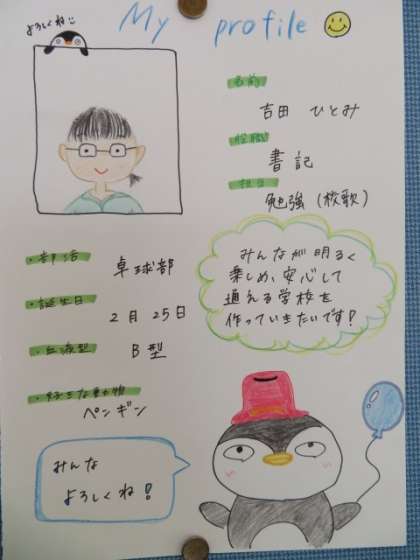 My profile
よろしくね
名前
吉田 ひとみ
役職
書記
担当
勉強(校歌)
・部活
卓球部
・誕生日
2月25日
・血液型
B型
・好きな動物
ペンギン
みんなが明るく
楽しめ、安心して
通える学校を
作っていきたいです!
みんな
よろしくね!